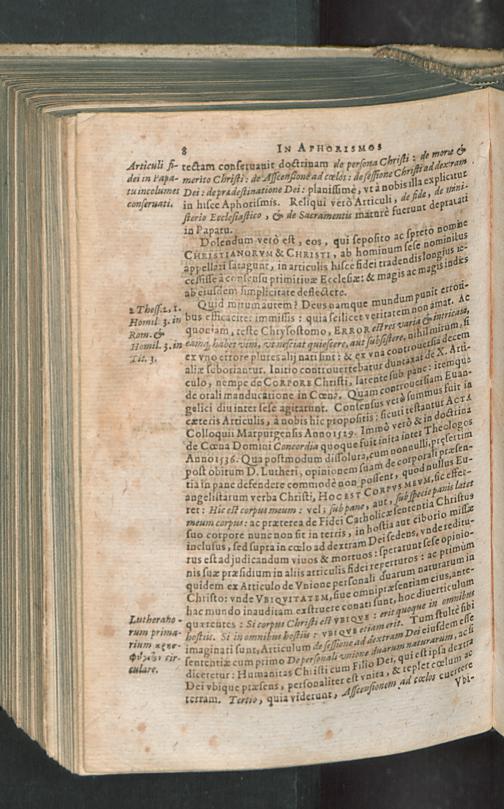 8 IN APHORISMOS
Articuli fi-
dei in Papa-
tu incolumes
conseruati.
tectam conseruauit doctrinam de persona Christi: de morte &
merito Christi: de Ascensione ad cœlos: de sessione Christi ad dextram
Dei: de prædestinatione Dei: planissimè, vt à nobis illa explicatur
in hisce Aphorismis. Reliqui verò Articuli, de fide, de mini-
sterio Ecclesiastico, & de Sacramentis maturè fuerunt deprauati
in Papatu.
Dolendum verò est, eos, qui seposito ac spreto nomine
CHRISTIANORVM & CHRISTI, ab hominum sese nominibus
appellari satagunt, in articulis hisce fidei tradendis longius re-
cessisse à consensu primitiuæ Ecclesiæ: & magis ac magis indies
ab eiusdem simplicitate deflectere.
2 Thess. 2. 1.
Homil. 3. in
Rom. &
Homil. 3. in
Tit. 3.
Quid mirum autem? Deus namque mundum punit errori-
bus efficaciter immissis: quia scilicet veritatem non amat. Ac
quoniam, teste Chrysostomo, ERROR est res varia & intricata,
eamq; habet vim, vt nesciat quiescere, aut subsistere, nihil mirum, si
ex vno errore plures alij nati sint: & ex vna controuersia decem
aliæ suboriantur. Initio controuertebatur duntaxat de X. Arti-
culo, nempe de CORPORE Christi, latente sub pane: itemque
de orali manducatione in Cœna. Quam controuersiam Euan-
gelici diu inter sese agitarunt. Consensus verò summus fuit in
cæteris Articulis, à nobis hic propositis: sicuti testantur ACTA
Colloquii Marpurgensis Anno 1529. Immò verò & in doctrina
de Cœna Domini Concordia quoque fuit inita inter Theologos
Anno 1536. Qua postmodum dissoluta, cum nonnulli, præsertim
post obitum D. Lutheri, opinionem suam de corporali præsen-
tia in pane defendere commodè non possent, quod nullus Eu-
angelistarum verba Christi, HOC EST CORPVS MEVM, sic effer-
ret: Hic est corpus meum: vel; sub pane, aut, sub specie panis latet
meum corpus: ac præterea de Fidei Catholicæ sententia Christus
suo corpore nunc non sit in terris, in hostia aut ciborio missæ
inclusus, sed supra in cœlo ad dextram Dei sedens, vnde reditu-
rus est ad judicandum viuos & mortuos: sperarunt sese opinio-
nis suæ præsidium in aliis articulis fidei reperturos: ac primùm
quidem ex Articulo de Vnione personali duarum naturarum in
Christo: vnde VBIQVITATEM, siue omnipræsentiam eius, ante-
hac mundo inauditam exstruere conati sunt, hoc diuerticulum
quærentes: Si corpus Christi est VBIQVE: erit quoque in omnibus
hostiis. Si in omnibus hostiis: VBIQVE etiam erit. Tum stultè sibi
imaginati sunt, Articulum de sessione ad dextram Dei eiusdem esse
sententiæ cum primo De personali vnione duarum naturarum, ac si
diceretur: Humanitas Christi cum Filio Dei, qui est ipsa dextra
Dei vbique præsens, personaliter est vnita, & replet cœlum ac
terram. Tertio, quia viderunt, Ascensionem ad cœlos euertere
Lutherano-
rum prima-
rium
cir-
culare.
Vbi-